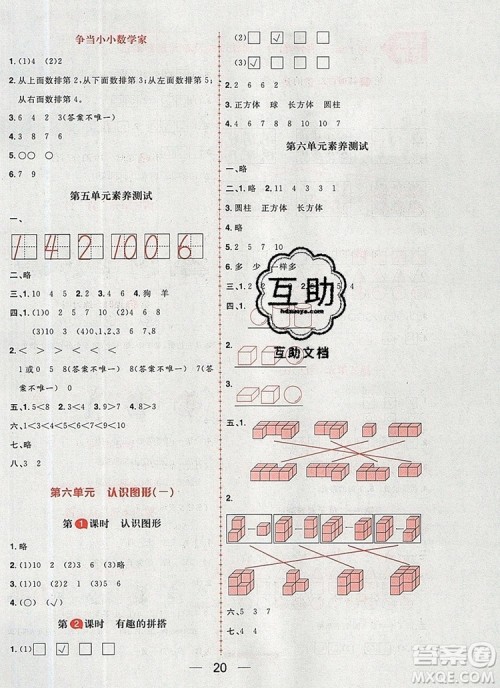 争当小小数学家
1. (1)4 (2)2
2. 从上面数排第2,从下面数排第5;从右面数排第5,从左面数排第4。
3. 6 4 2 3(答案不唯一)
4. 3 8 7 6
5. ○○
第五单元素养测试
一、
1 4 2 10 0 6
二、略
三、1. (1)10 (2)3 4 (3)狗 羊
2. (1)10 (2)6 7
四、1. > > >
< < <
2. 1或0 5 8(答案不唯一) 7(答案不唯一) 0(答案不唯一)
五、1. 1<8 2. 3<4
六、1<2<3<4<5<6<7<9<10
七、略
八、3 2
第六单元 认识图形(一)
第1课时 认识图形
1. 略
2. (1)10 (2)3 2 (3)5 9
3. (1)○ (2)
4. 略
第2课时 有趣的拼搭
1. (1)□ ☑ □ □
(2)□ □ □ □
(3)□ ☑ □ □
2. 6
3. 正方体 球 长方体 圆柱
4. 6 7 8 9 10
第六单元素养测试
一、略
二、1. 略 2. 11 4 3 3 1
3. 圆柱 正方体 长方体
4. 略
5. 2 5 7 10
6. 多 少 一样多
三、
四、1.
2.
3.
五、1.
2.
六、5 3 4 7
七、4 4
互助
互助文档
20
答案圈